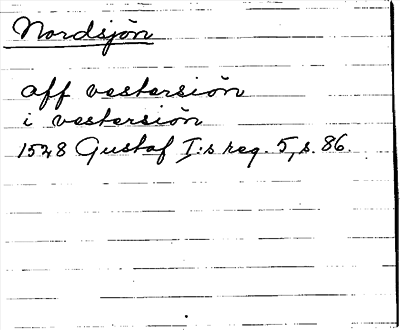 Nordsjön
aff vestersiön
i vestersiön
1528 Gustaf I:s reg. 5, s. 86.